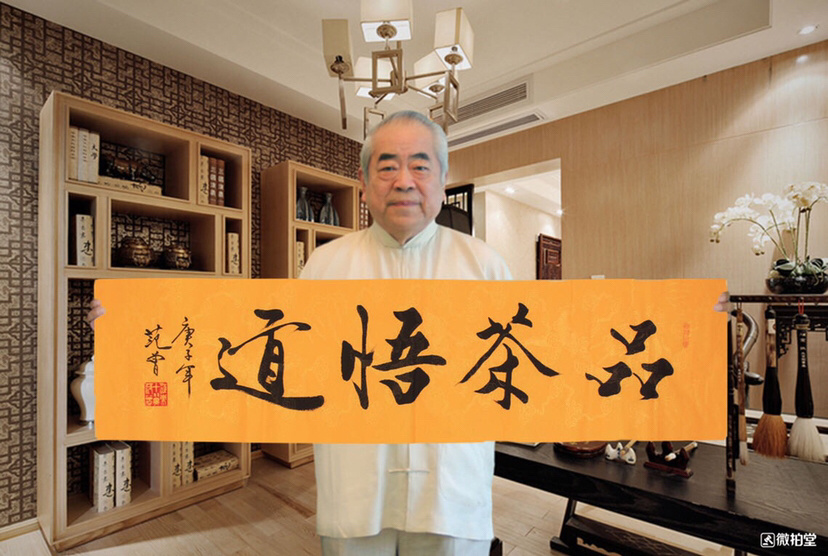 品茶悟道
庚子年
范曾
微拍堂